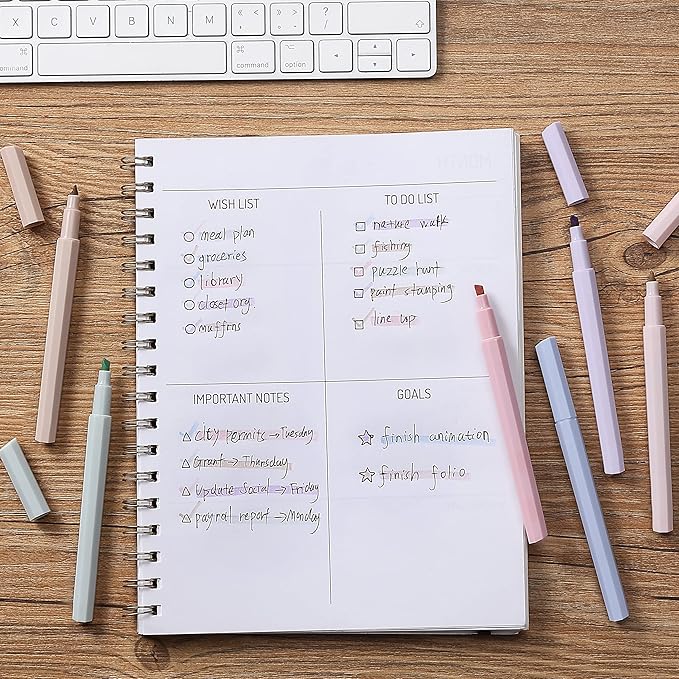 X C V B N M < , > . ? /
command ⌘ ⌘ command ⌥ option
WISH LIST
meal plan
groceries
library
closet org
muffins
TO DO LIST
nature walk
fishing
puzzle hunt
paint stamping
line up
IMPORTANT NOTES
City permits → Tuesday
Grant → Thursday
Update Social → Friday
payroal report → Monday
GOALS
finish animation
finish folio